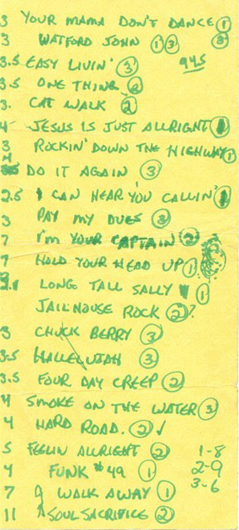 3 YOUR MAMA DON'T DANCE 1
3 WATFORD JOHN 1 3 3
3.5 EASY LIVIN' 3 945
3.5 ONE THING 2
3. CAT WALK 2
4 JESUS IS JUST ALLRIGHT
3 ROCKIN' DOWN THE HIGHWAY 1
DO IT AGAIN 3
2.5 I CAN HEAR YOU CALLIN'
3 PAY MY DUES 3
7 I'M YOUR CAPTAIN 2
7 HOLD YOUR HEAD UP 1
LONG TALL SALLY 1
JAILHOUSE ROCK 2?
3 CHUCK BERRY 3
3.5 HALLELUJAH 3
3.5 FOUR DAY CREEP 2
4 SMOKE ON THE WATER 3
4 HARD ROAD. 2 ✓
5 FEELIN ALLRIGHT 2 1-8
4 FUNK #49 1 2-9
7 WALK AWAY 1 3-6
11 SOUL SACRIFICE 2